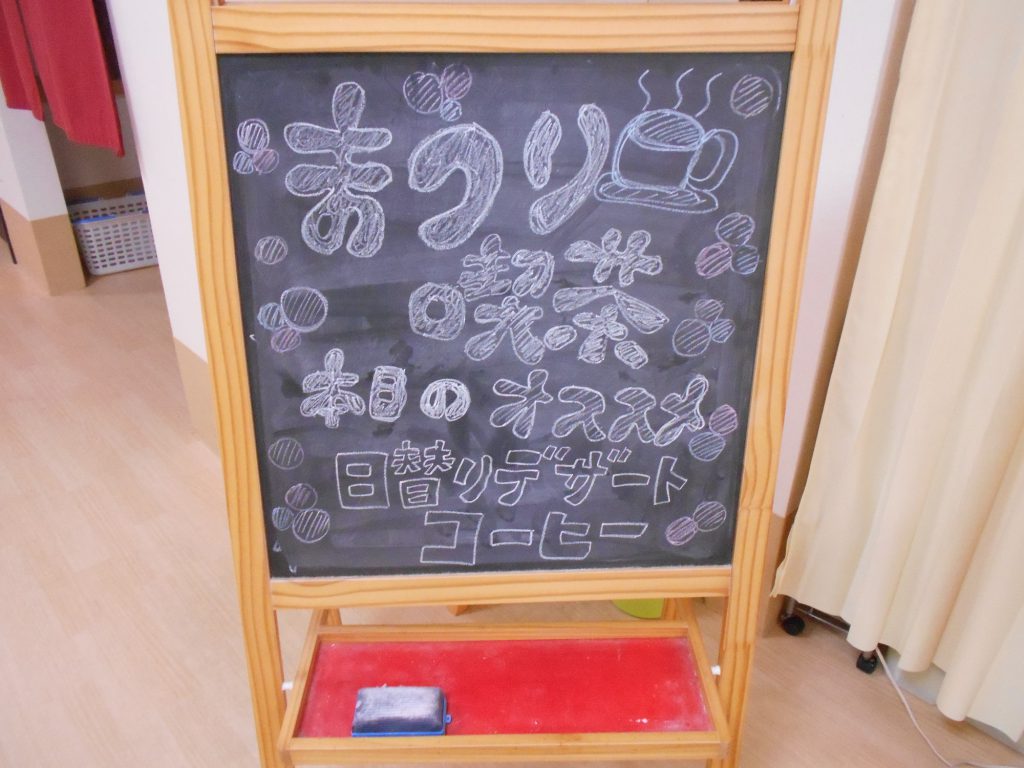 まつり
喫茶
本日の オススメ
日替りデザート
コーヒー